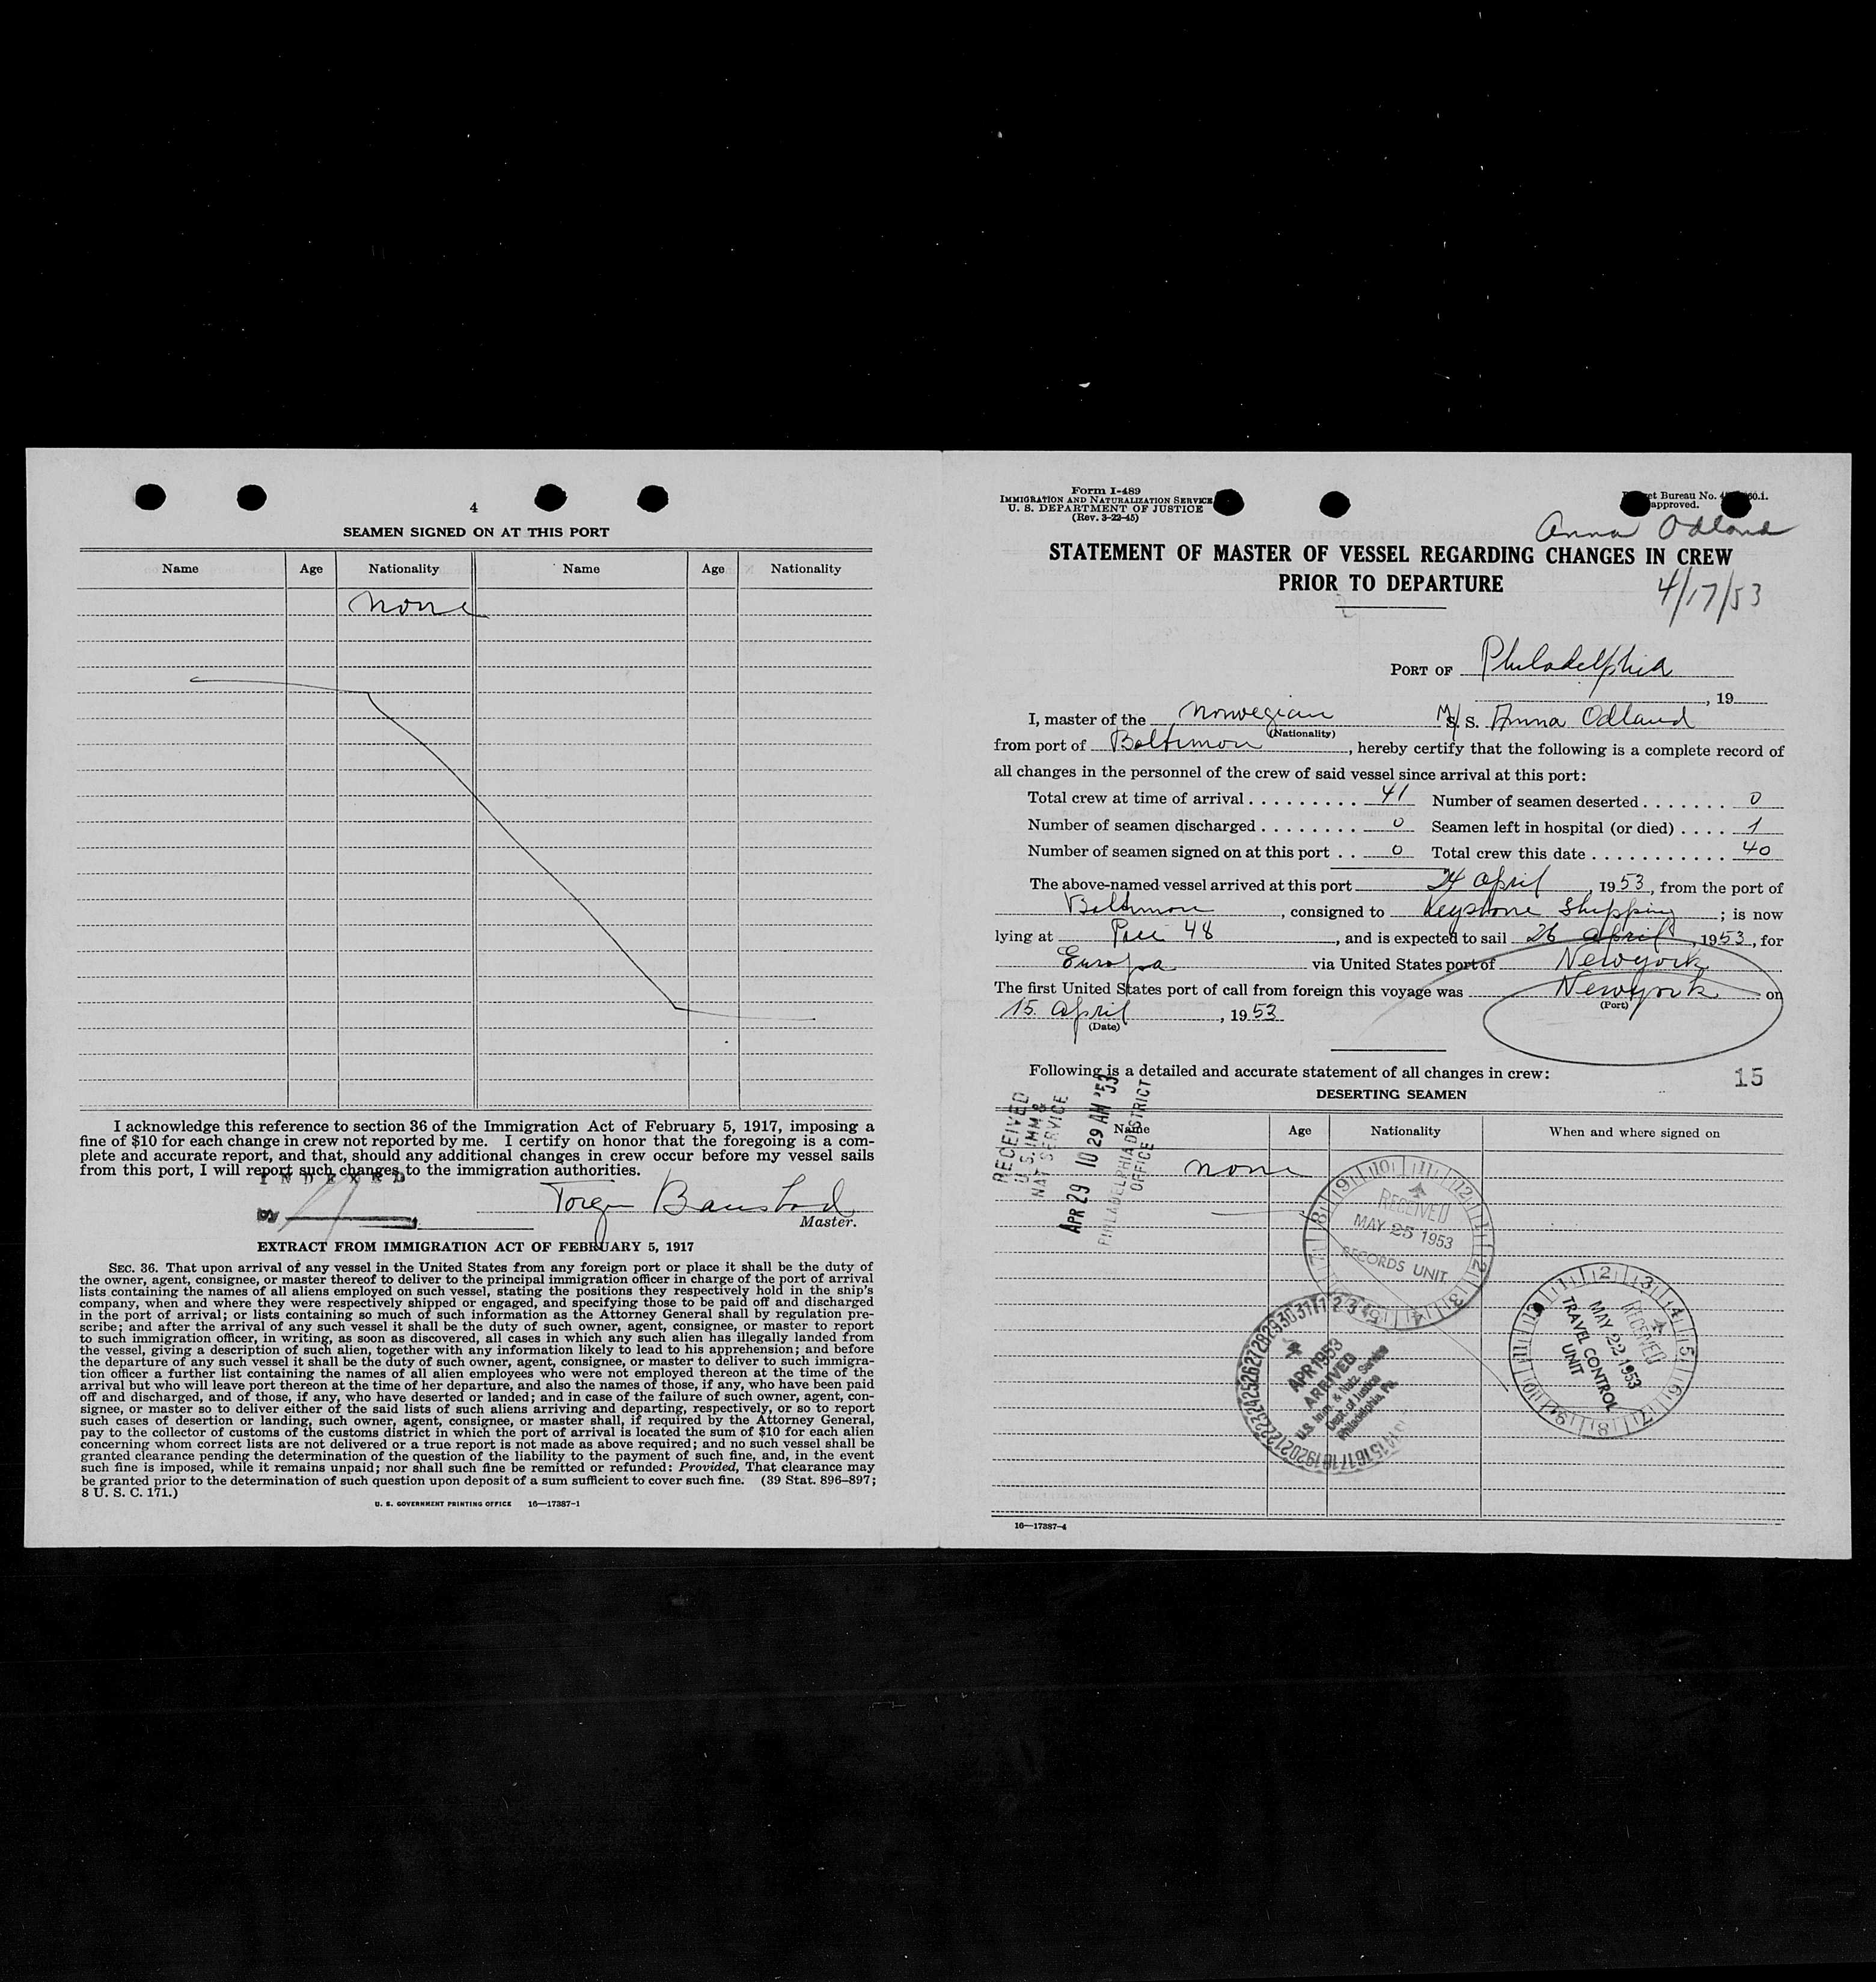 4
SEAMEN SIGNED ON AT THIS PORT
Name Age Nationality Name Age Nationality
None
I acknowledge this reference to section 36 of the Immigration Act of February 5, 1917, imposing a
fine of $10 for each change in crew not reported by me. I certify on honor that the foregoing is a com-
plete and accurate report, and that, should any additional changes in crew occur before my vessel sails
from this port, I will report such changes to the immigration authorities.
INDEXED
By
Master.
EXTRACT FROM IMMIGRATION ACT OF FEBRUARY 5, 1917
SEC. 36. That upon arrival of any vessel in the United States from any foreign port or place it shall be the duty of
the owner, agent, consignee, or master thereof to deliver to the principal immigration officer in charge of the port of arrival
lists containing the names of all aliens employed on such vessel, stating the positions they respectively hold in the ship's
company, when and where they were respectively shipped or engaged, and specifying those to be paid off and discharged
in the port of arrival; or lists containing so much of such information as the Attorney General shall by regulation pre-
scribe; and after the arrival of any such vessel it shall be the duty of such owner, agent, consignee, or master to report
to such immigration officer, in writing, as soon as discovered, all cases in which any such alien has illegally landed from
the vessel, giving a description of such alien, together with any information likely to lead to his apprehension; and before
the departure of any such vessel it shall be the duty of such owner, agent, consignee, or master to deliver to such immigra-
tion officer a further list containing the names of all alien employees who were not employed thereon at the time of the
arrival but who will leave port thereon at the time of her departure, and also the names of those, if any, who have been paid
off and discharged, and of those, if any, who have deserted or landed; and in case of the failure of such owner, agent, con-
signee, or master so to deliver either of the said lists of such aliens arriving and departing, respectively, or so to report
such cases of desertion or landing, such owner, agent, consignee, or master shall, if required by the Attorney General,
pay to the collector of customs of the customs district in which the port of arrival is located the sum of $10 for each alien
concerning whom correct lists are not delivered or a true report is not made as above required; and no such vessel shall be
granted clearance pending the determination of the question of the liability to the payment of such fine, and, in the event
such fine is imposed, while it remains unpaid; nor shall such fine be remitted or refunded: Provided, That clearance may
be granted prior to the determination of such question upon deposit of a sum sufficient to cover such fine. (39 Stat. 896–897;
8 U. S. C. 171.)
U. S. GOVERNMENT PRINTING OFFICE 16—17387-1
Form I-489
IMMIGRATION AND NATURALIZATION SERVICE
U. S. DEPARTMENT OF JUSTICE
(Rev. 3-22-45)
Bureau No.
approved.
Anna Odland
STATEMENT OF MASTER OF VESSEL REGARDING CHANGES IN CREW
PRIOR TO DEPARTURE
4/17/53
PORT OF Philadelphia
, 19
I, master of the Norwegian M/S. Anna Odland
(Nationality)
from port of Baltimore, hereby certify that the following is a complete record of
all changes in the personnel of the crew of said vessel since arrival at this port:
Total crew at time of arrival 41 Number of seamen deserted 0
Number of seamen discharged 0 Seamen left in hospital (or died) 1
Number of seamen signed on at this port 0 Total crew this date 40
The above-named vessel arrived at this port 24 April, 1953, from the port of
Baltimore, consigned to Keystone Shipping; is now
lying at 48, and is expected to sail 26 April, 1953, for
Europa via United States port of Newyork
The first United States port of call from foreign this voyage was Newyork on
(Port)
15. April, 1953
(Date)
Following is a detailed and accurate statement of all changes in crew:
15
DESERTING SEAMEN
Name Age Nationality When and where signed on
None
RECEIVED
U. S. IMM. &
NAT SERVICE
APR 29 10 29 AM '53
PHILADELPHIA DISTRICT
OFFICE
RECEIVED
MAY 25 1953
RECORDS UNIT
APR 1953
ARRIVED
U.S. Imm. & Natz. Service
Dept. of Justice
Philadelphia, Pa.
RECEIVED
MAY 22 1953
TRAVEL CONTROL
UNIT
16—17387-4